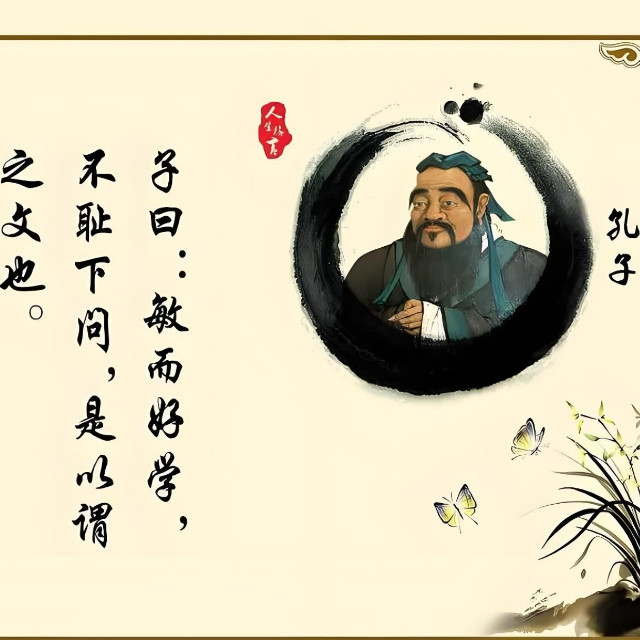 子曰：敏而好学，
不耻下问，是以谓
之文也。
孔子